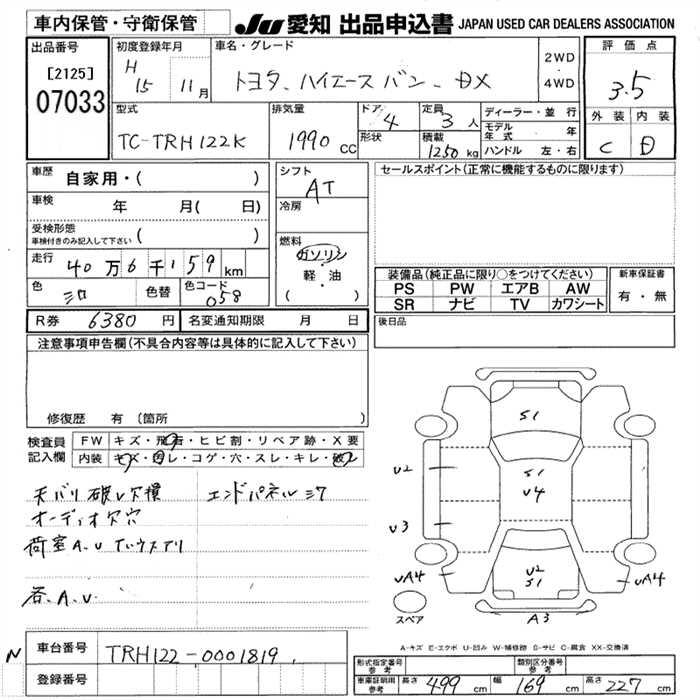 車内保管・守衛保管 JU 愛知 出品申込書 JAPAN USED CAR DEALERS ASSOCIATION
出品番号
[2125]
07033
初度登録年月
H 15 11月
車名・グレード
トヨタ ハイエース バン DX
2WD
・
4WD
評価点
3.5
外装 内装
C D
型式
TC-TRH122K
排気量
1990 CC
ドア
4
形状
定員
3 人
積載
1250 kg
ディーラー・並行
モデル年式 年
ハンドル 左・右
車歴 自家用・( )
車検 年 月( 日)
受検形態
車検付きのみ記入して下さい ( )
走行 40万6千159km
色 シロ 色替 色コード 058
シフト
AT
冷房
燃料
ガソリン
・
軽・油
・
( )
セールスポイント(正常に機能するものに限ります)
装備品(純正品に限り○をつけてください)
PS PW エアB AW
SR ナビ TV カワシート
新車保証書
有・無
後日品
R券 6380 円 名変通知期限 月 日
注意事項申告欄(不具合内容等は具体的に記入して下さい)
修復歴 有(箇所 )
検査員記入欄
FW キズ・飛石・ヒビ割・リペア跡・X要
内装 キズ・ヨゴレ・コゲ・穴・スレ・キレ・破レ
天バリ破レ欠損
エンドパネル
オーディオ欠 穴
荷室A.U
各A.U.
S1
S1
U4
U2
U3
U2
S1
UA4
UA4
A3
スペア
A-キズ E-エクボ U-凹み W-補修跡 S-サビ C-腐食 XX-交換済
N 車台番号 TRH122-0001819
登録番号
形式指定番号 参考
類別区分番号 参考
車庫証明用 参考 長さ 499 cm 幅 169 cm 高さ 227 cm